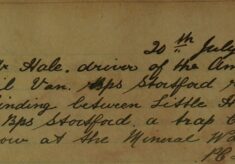 20th July
Hale, driver of the Am
Van. Bps Stortford
nding between Little H
Bps Stortford, a trap
ow at the Mineral W